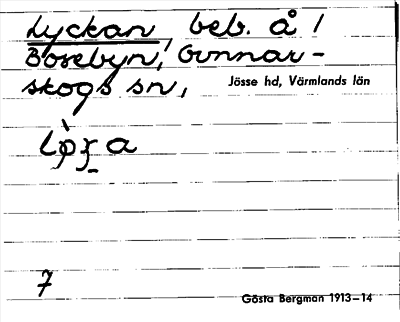 Lyckan, beb. å 1
Bosebyn, Gunnar-
skogs sn, Jösse hd, Värmlands län
7
Gösta Bergman 1913–14